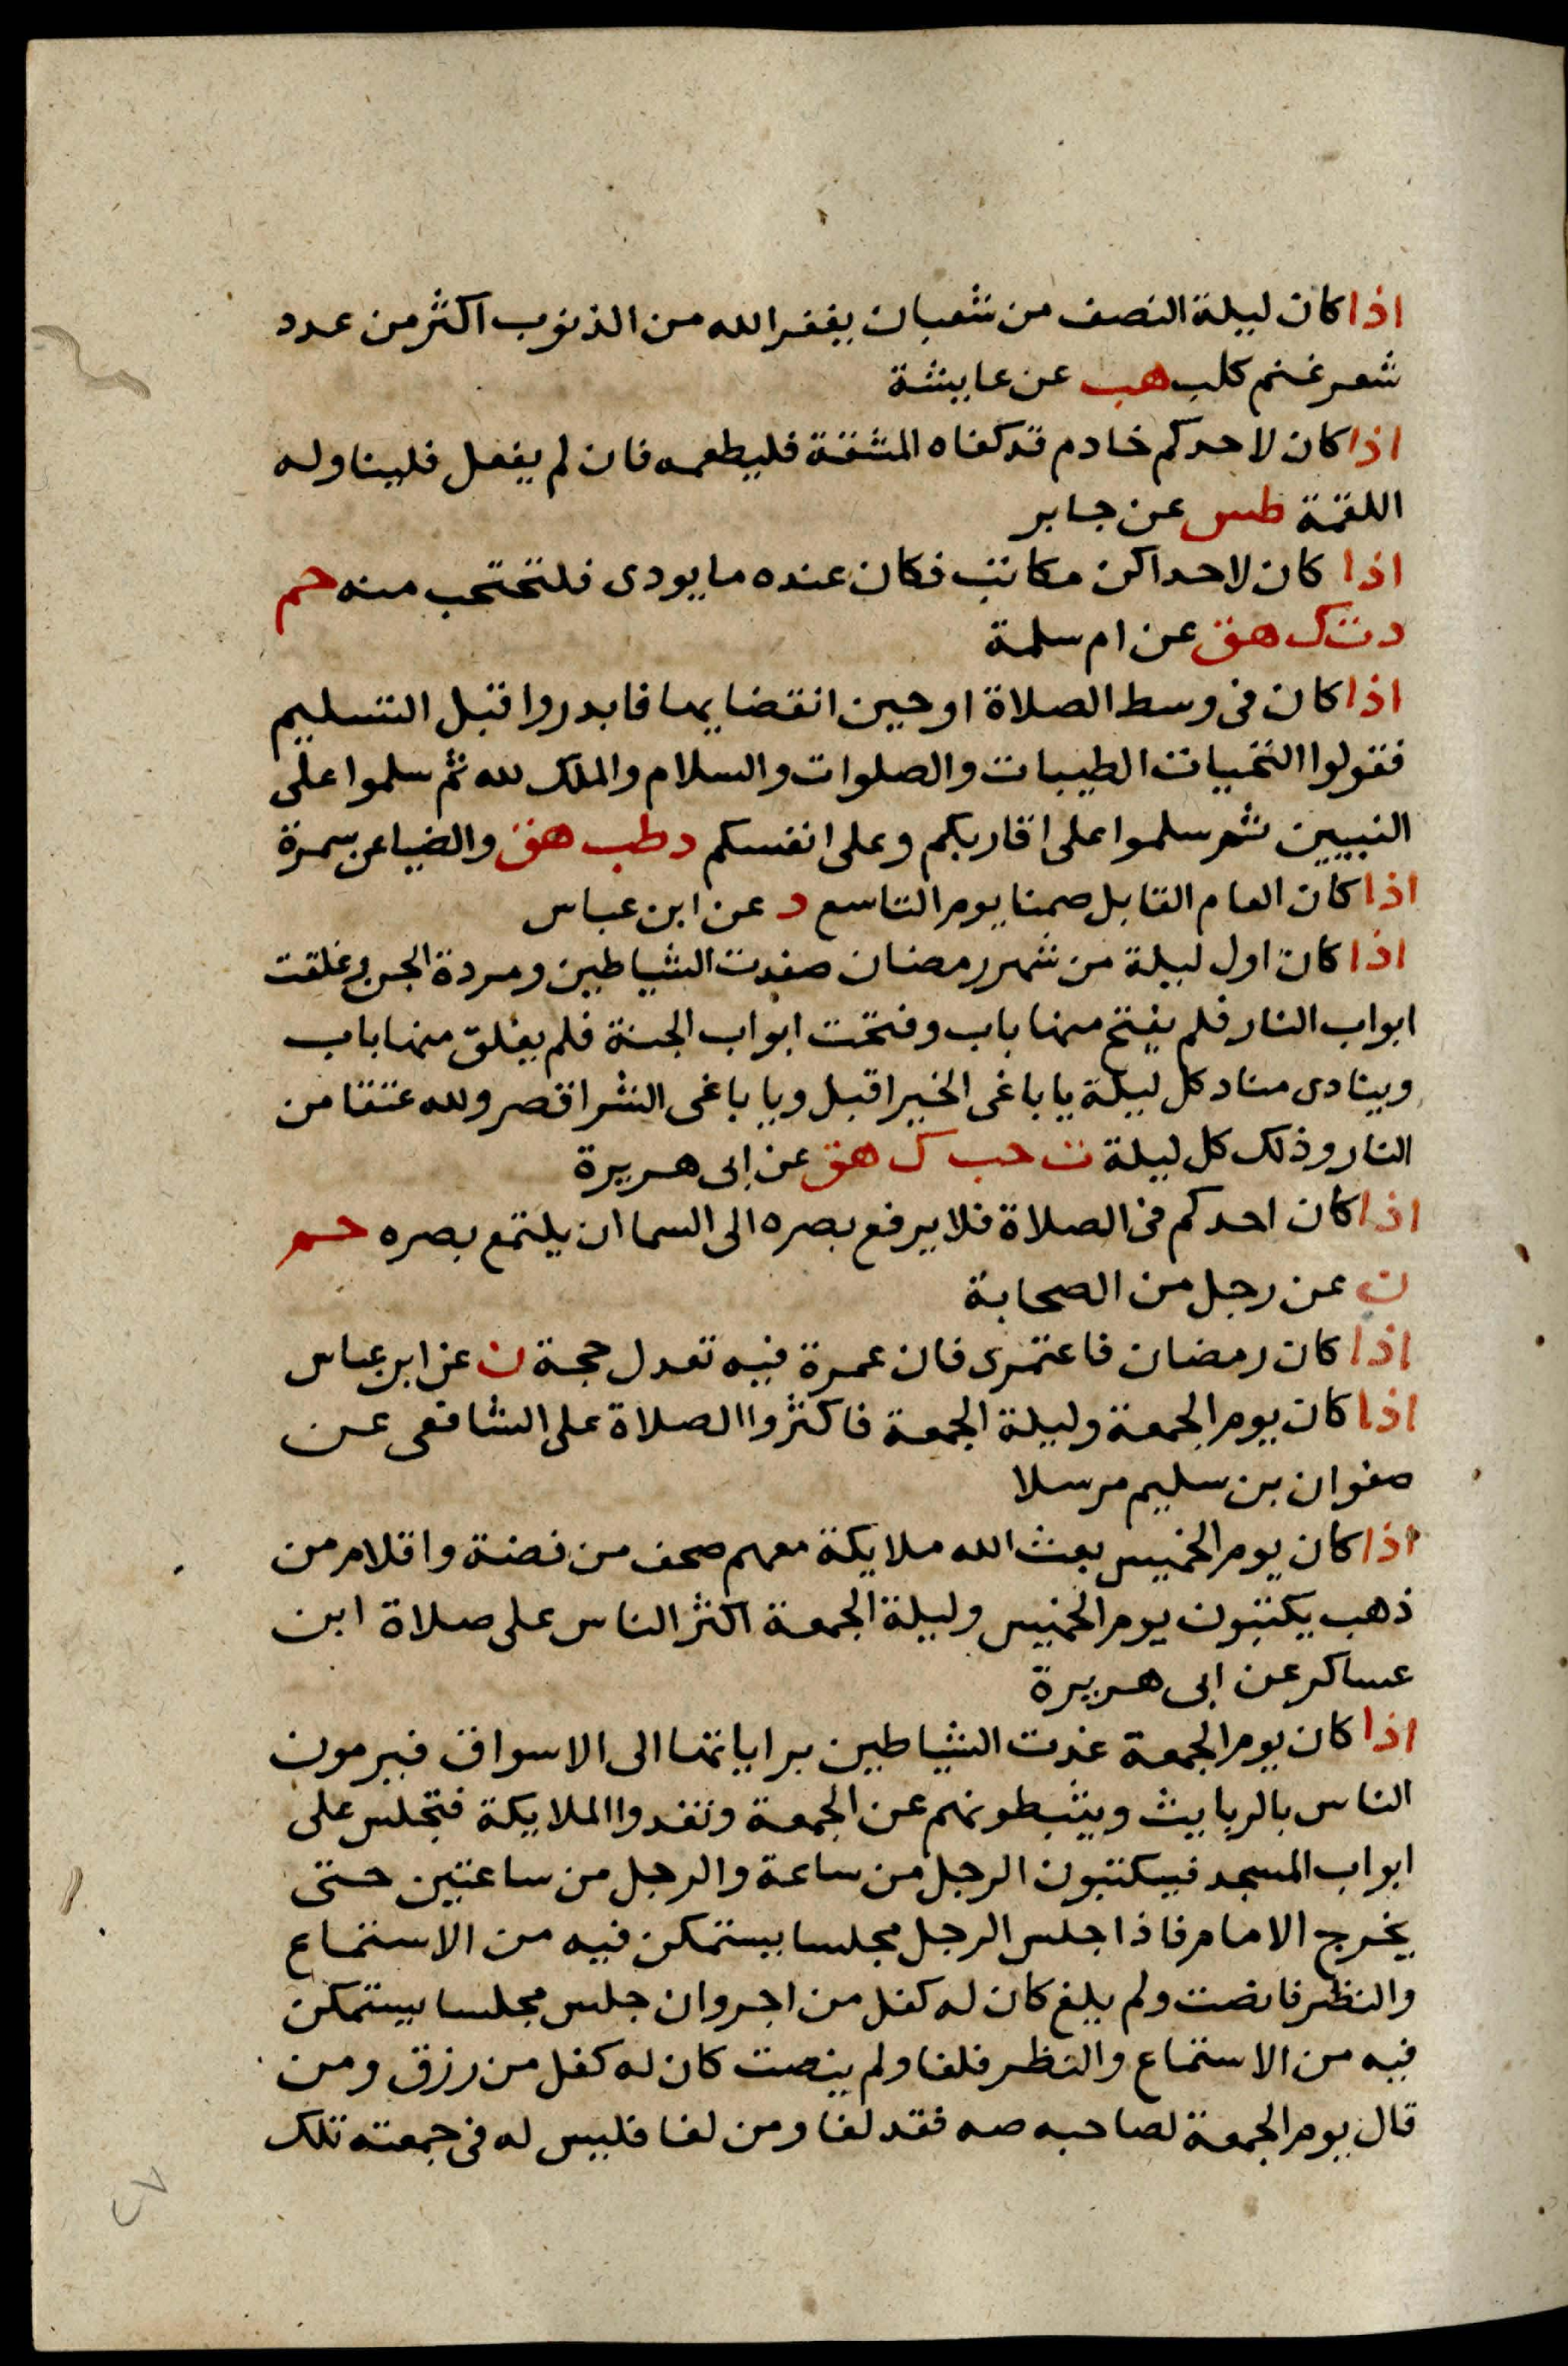 اذا كان ليلة النصف من شعبان يغفر الله من الذنوب اكثر من عدد
شعر غنم كلب هب عن عايشة
اذا كان لاحدكم خادم قد كفاه المشقة فليطعمه فان لم يفعل فليناوله
اللقمة طس عن جابر
اذا كان لاحداكن مكاتب فكان عنده ما يودى فلتحتجب منه حم
د ت ك هق عن ام سلمة
اذا كان فى وسط الصلاة او حين انقضايها فابدروا قبل التسليم
فقولوا التحيات الطيبات والصلوات والسلام والملك لله ثم سلموا على
النبيين ثم سلموا على اقاربكم وعلى انفسكم د طب هق والضيا عن سمرة
اذا كان العام القابل صمنا يوم التاسع د عن ابن عباس
اذا كان اول ليلة من شهر رمضان صفدت الشياطين ومردة الجن وغلقت
ابواب النار فلم يفتح منها باب وفتحت ابواب الجنة فلم يغلق منها باب
وينادى مناد كل ليلة يا باغى الخير اقبل ويا باغى الشر اقصر ولله عتقا من
النار وذلك كل ليلة ت حب ك هق عن ابى هريرة
اذا كان احدكم فى الصلاة فلا يرفع بصره الى السما ان يلتمع بصره حم
ن عن رجل من الصحابة
اذا كان رمضان فاعتمرى فان عمرة فيه تعدل حجة ن عن ابن عباس
اذا كان يوم الجمعة وليلة الجمعة فاكثروا الصلاة على الشافعى عن
صفوان بن سليم مرسلا
اذا كان يوم الخميس بعث الله ملايكة معهم صحف من فضة واقلام من
ذهب يكتبون يوم الخميس وليلة الجمعة اكثر الناس على صلاة ابن
عساكر عن ابى هريرة
اذا كان يوم الجمعة غدت الشياطين براياتها الى الاسواق فيرمون
الناس بالربايث ويثبطونهم عن الجمعة وتغدوا الملايكة فتجلس على
ابواب المسجد فيكتبون الرجل من ساعة والرجل من ساعتين حتى
يخرج الامام فاذا جلس الرجل مجلسا يستمكن فيه من الاستماع
والنظر فانصت ولم يلغ كان له كفل من اجر وان جلس مجلسا يستمكن
فيه من الاستماع والنظر فلغا ولم ينصت كان له كفل من رزق ومن
قال يوم الجمعة لصاحبه صه فقد لغا ومن لغا فليس له فى جمعته تلك